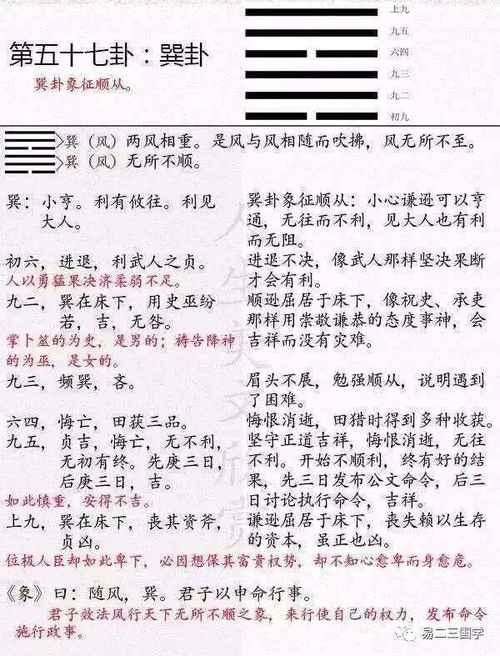 第五十七卦：巽卦
巽卦象征顺从。
上九
九五
六四
九三
九二
初九
巽（风）两风相重。是风与风相随而吹拂，风无所不至。
巽（风）无所不顺。
巽：小亨。利有攸往。利见
大人。
巽卦象征顺从：小心谦逊可以亨
通，无往而不利，见大人也有利
而无阻。
初六，进退，利武人之贞。
人以勇猛果决济柔弱不足。
进退不决，像武人那样坚决果断
才会有利。
九二，巽在床下，用史巫纷
若，吉，无咎。
掌卜筮的为史，是男的；祷告降神
的为巫，是女的。
顺逊屈居于床下，像祝史、承吏
那样用崇敬谦恭的态度事神，会
吉祥而没有灾难。
九三，频巽，吝。
眉头不展，勉强顺从，说明遇到
了困难。
六四，悔亡，田获三品。
悔恨消逝，田猎时得到多种收获。
九五，贞吉，悔亡，无不利，
无初有终。先庚三日，
后庚三日，吉。
如此慎重，安得不吉。
坚守正道吉祥，悔恨消逝，无往
不利。开始不顺利，终有好的结
果，先三日发布公文命令，后三
日讨论执行命令，吉祥。
上九，巽在床下，丧其资斧，
贞凶。
谦逊屈居于床下，丧失赖以生存
的资本，虽正也凶。
位极人臣却如此卑下，必因想保其富贵权势，却不知心愈卑而身愈危。
《象》曰：随风，巽。君子以申命行事。
君子效法风行天下无所不顺之象，来行使自己的权力，发布命令
施行政事。
人生美文欣赏
易二三国学